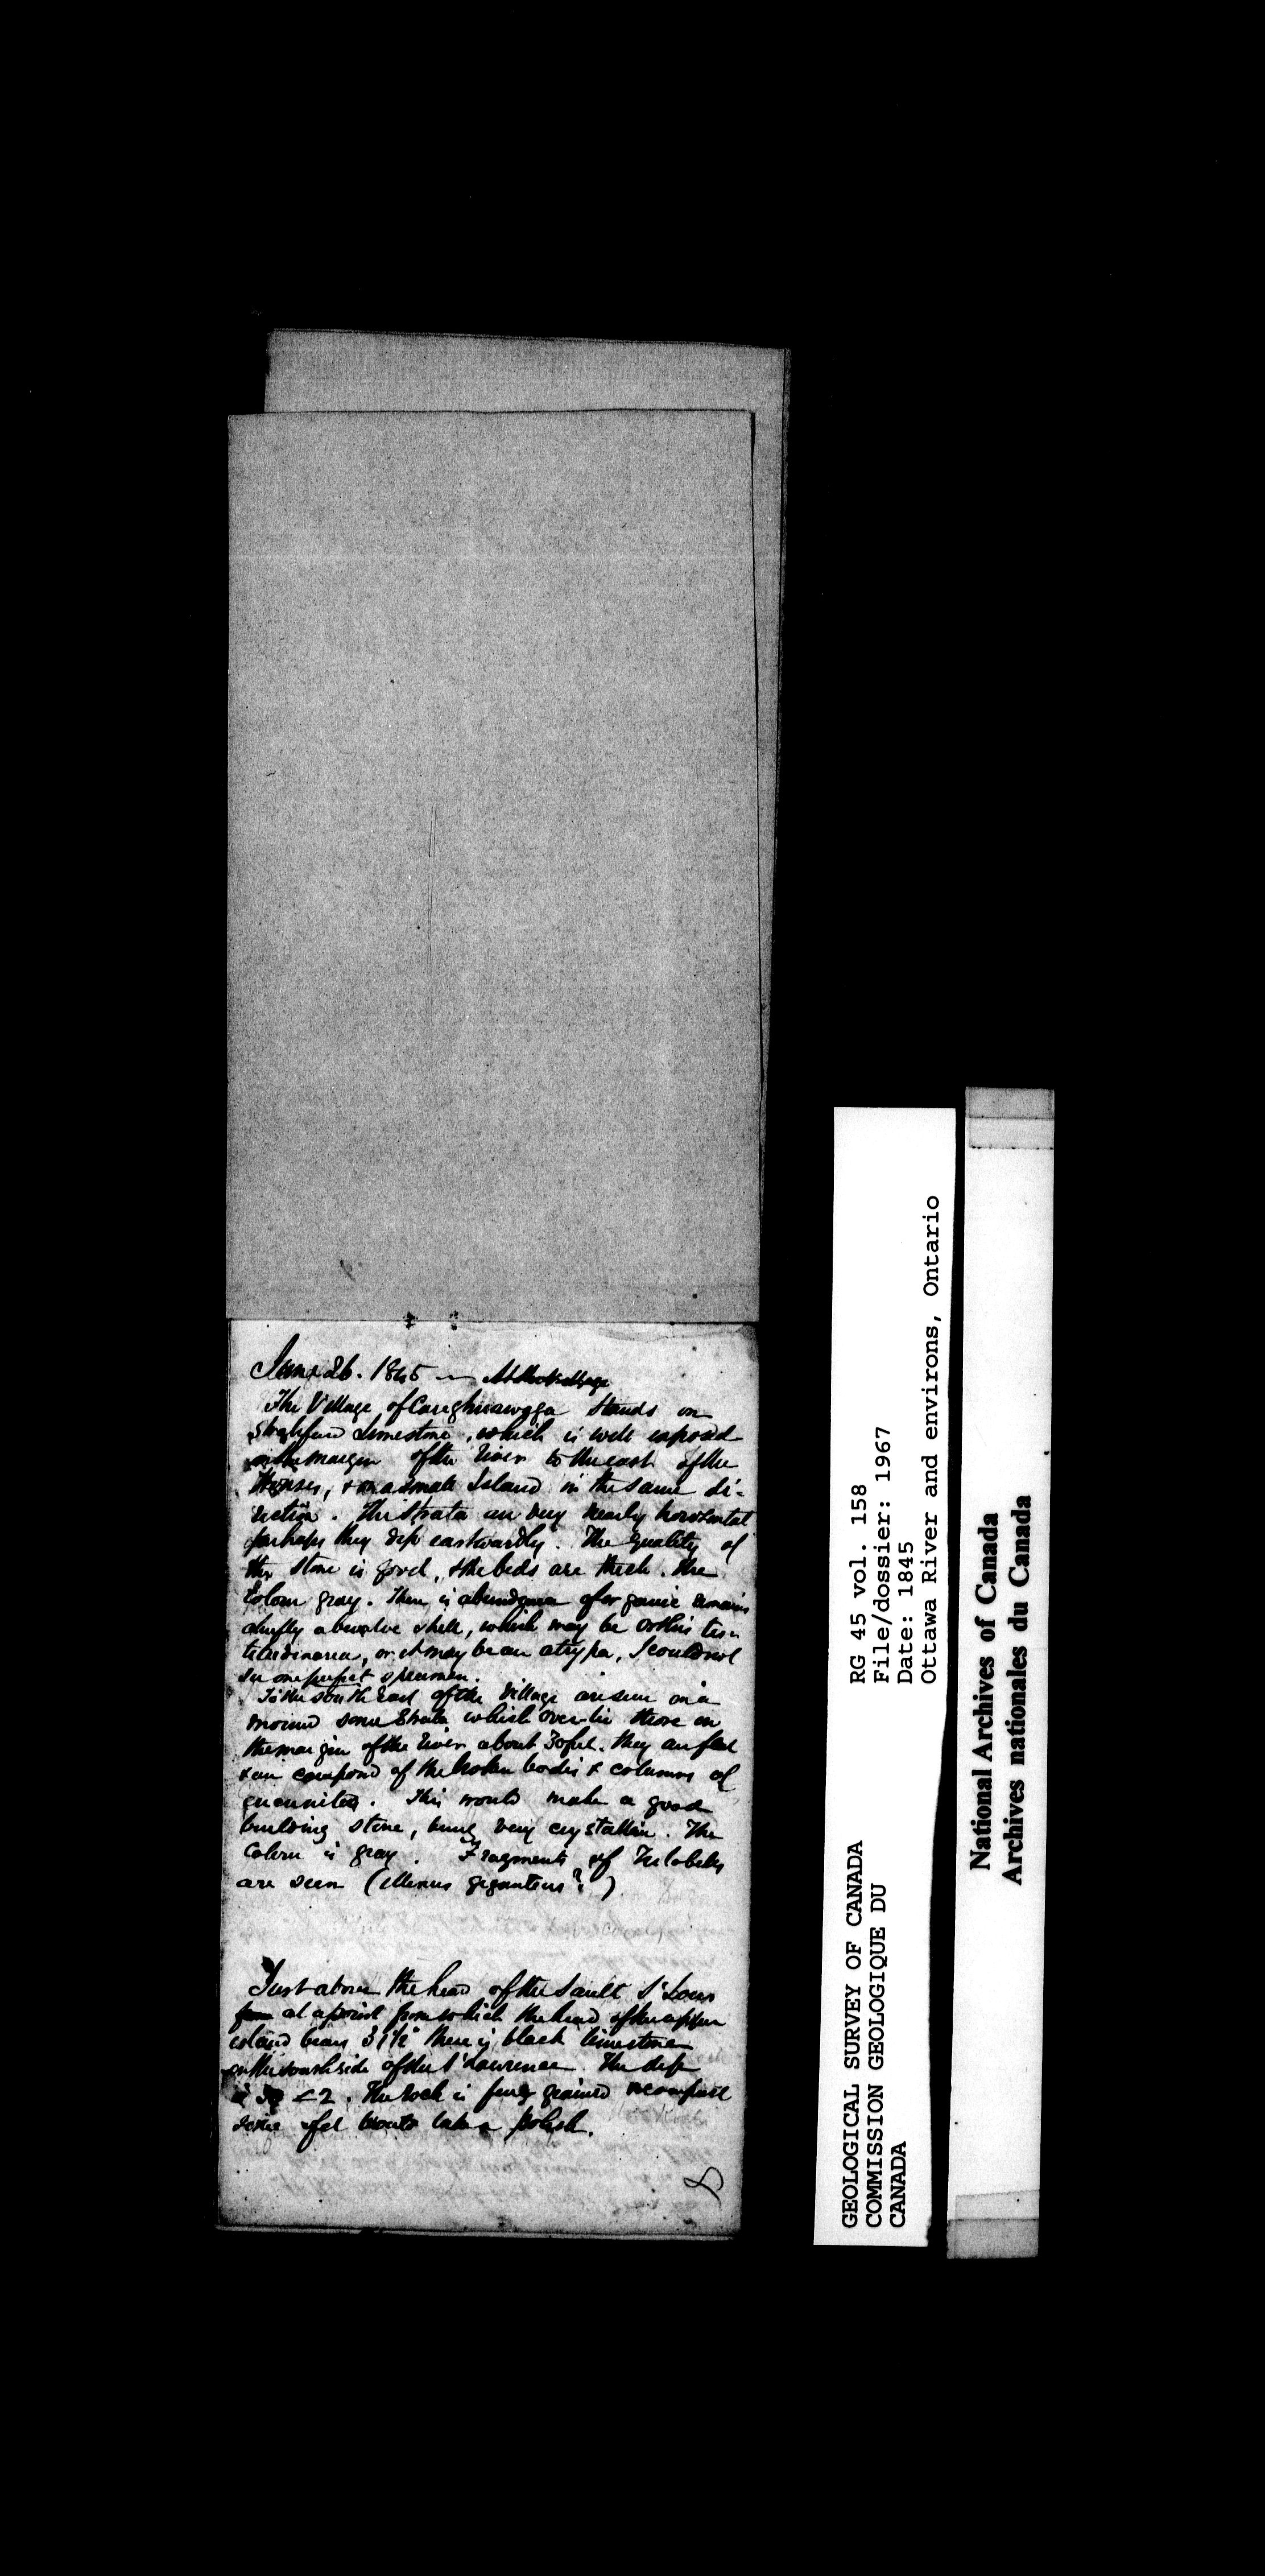 June 26. 1845 — At the Village
The Village of Caughnawaga stands on
limestone, which is well exposed
on the margin of the River to the east of the
Houses, & on a small Island in the same di-
rection. The strata are very nearly horizontal
perhaps they dip eastwardly. The quality of
the stone is good, & the beds are thick. The
Colour gray. There is abundance of organic remains
chiefly a bivalve shell, which may be Orthis tes-
tudinaria, or it may be an atrypa, I could not
see one perfect specimen.
To the south East of the Village are seen on a
mound some Strata which over-lie those on
the margin of the River about 30 feet. They are flat
& are composed of the broken bodies & columns of
encrinites. This would make a good
building stone, being very crystalline. The
Colour is gray. Fragments of Trilobites
are seen (Illenus giganteus?)
Just above the head of the Sault St Louis
from at a point from which the head of the upper
island bears there is black limestone
on the south side of the St Lawrence. The dip
is < 2. The rock is finely grained & compact
some of it would take a polish.
GEOLOGICAL SURVEY OF CANADA
COMMISSION GEOLOGIQUE DU
CANADA
RG 45 vol. 158
File/dossier: 1967
Date: 1845
Ottawa River and environs, Ontario
National Archives of Canada
Archives nationales du Canada